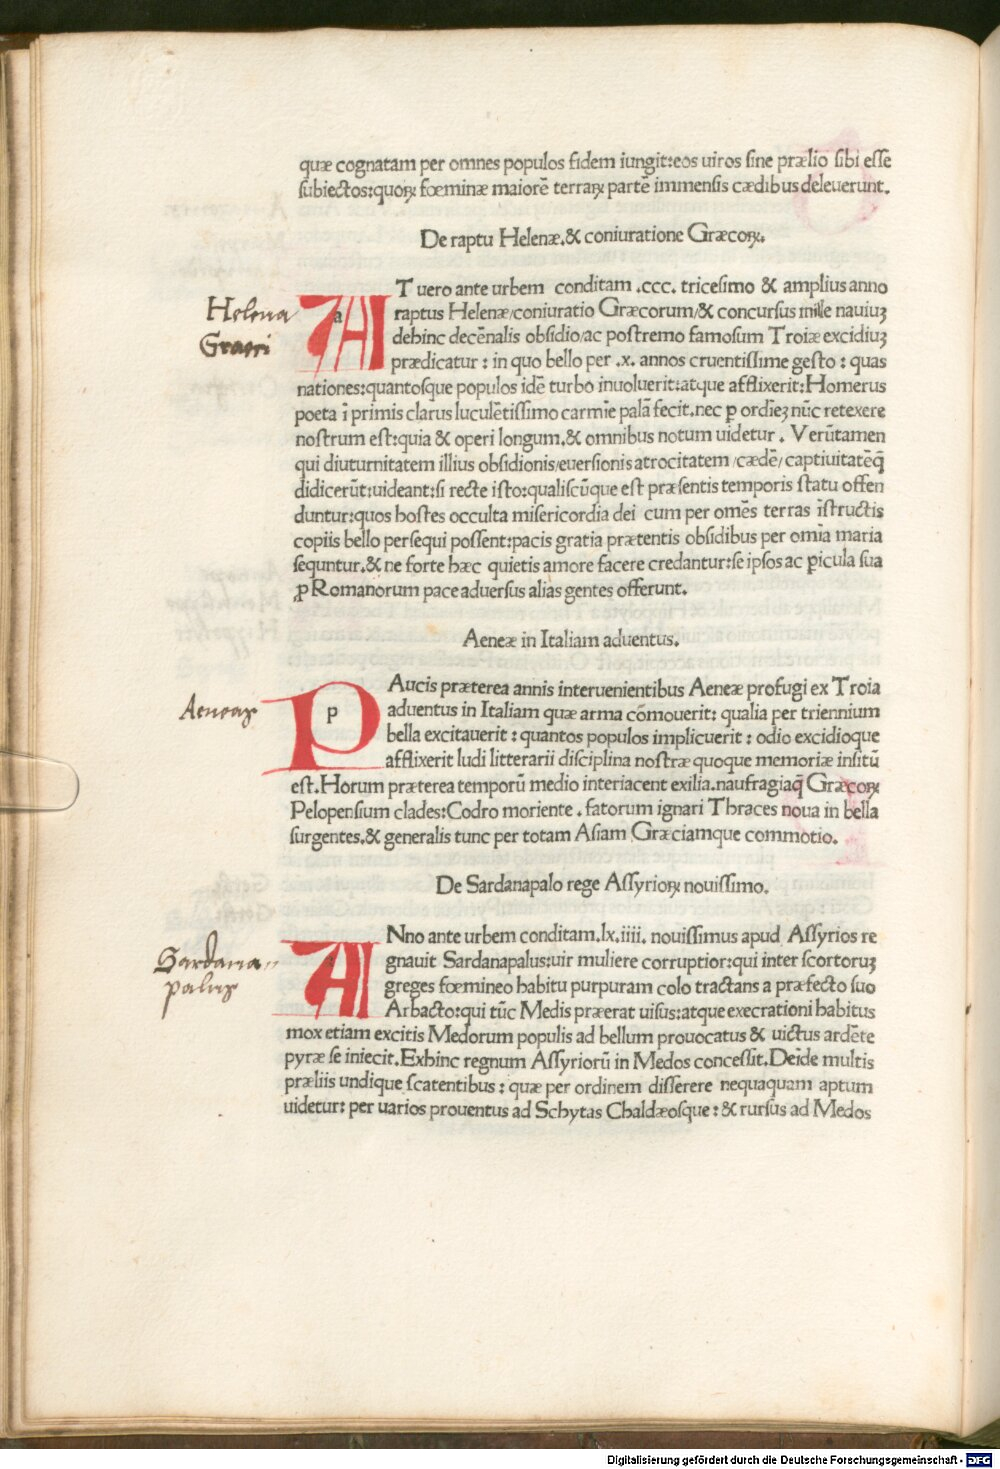 quæ cognatam per omnes populos fidem iungit:eos uiros sine prælio sibi esse
subiectos:quoꝝ fœminæ maiorē terraꝝ partē immensis cædibus deleuerunt.
De raptu Helenæ.& coniuratione Græcoꝝ.
AT uero ante urbem conditam .ccc. tricesimo & amplius anno
Helena
raptus Helenæ/coniuratio Græcorum/& concursus mille nauiuꝫ
Graeci
debinc decēnalis obsidio/ac postremo famosum Troiæ excidiuꝫ
prædicatur : in quo bello per .x. annos cruentissime gesto : quas
nationes:quantosque populos idē turbo inuoluerit:atque afflixerit:Homerus
poeta ī primis clarus luculētissimo carmīe palā fecit.nec ꝑ ordīeꝫ nūc retexere
nostrum est:quia & operi longum.& omnibus notum uidetur . Verūtamen
qui diuturnitatem illius obsidionis/euersionis atrocitatem/cædē/captiuitatēq̄
didicerūt:uideant:si recte isto:qualiscūque est præsentis temporis statu offen
duntur:quos hostes occulta misericordia dei cum per omēs terras īstructis
copiis bello persequi possent:pacis gratia prætentis obsidibus per omīa maria
sequntur.& ne forte hæc quietis amore facere credantur:se ipsos ac ꝑicula sua
ꝓ Romanorum pace aduersus alias gentes offerunt.
Aeneæ in Italiam aduentus.
PAucis præterea annis interuenientibus Aeneæ profugi ex Troia
Aeneas
p
aduentus in Italiam quæ arma cōmouerit: qualia per triennium
bella excitauerit : quantos populos implicuerit : odio excidioque
afflixerit ludi litterarii disciplina nostræ quoque memoriæ insitū
est.Horum præterea temporū medio interiacent exilia.naufragiaq̄ Græcoꝝ
Pelopensium clades:Codro moriente . fatorum ignari Thraces noua in bella
surgentes.& generalis tunc per totam Asiam Græciamque commotio.
De Sardanapalo rege Assyrioꝝ nouissimo.
ANno ante urbem conditam.lx.iiii. nouissimus apud Assyrios re
Sardana=
palus
gnauit Sardanapalus:uir muliere corruptior:qui inter scortoruꝫ
greges fœmineo habitu purpuram colo tractans a præfecto suo
Arbacto:qui tūc Medis præerat uisus:atque execrationi habitus
mox etiam excitis Medorum populis ad bellum prouocatus & uictus ardēte
pyræ se iniecit.Exhinc regnum Assyriorū in Medos concessit.Deīde multis
præliis undique scatentibus : quæ per ordinem disserere nequaquam aptum
uidetur: per uarios prouentus ad Schytas Chaldæosque : & rursus ad Medos
Digitalisierung gefördert durch die Deutsche Forschungsgemeinschaft - DFG